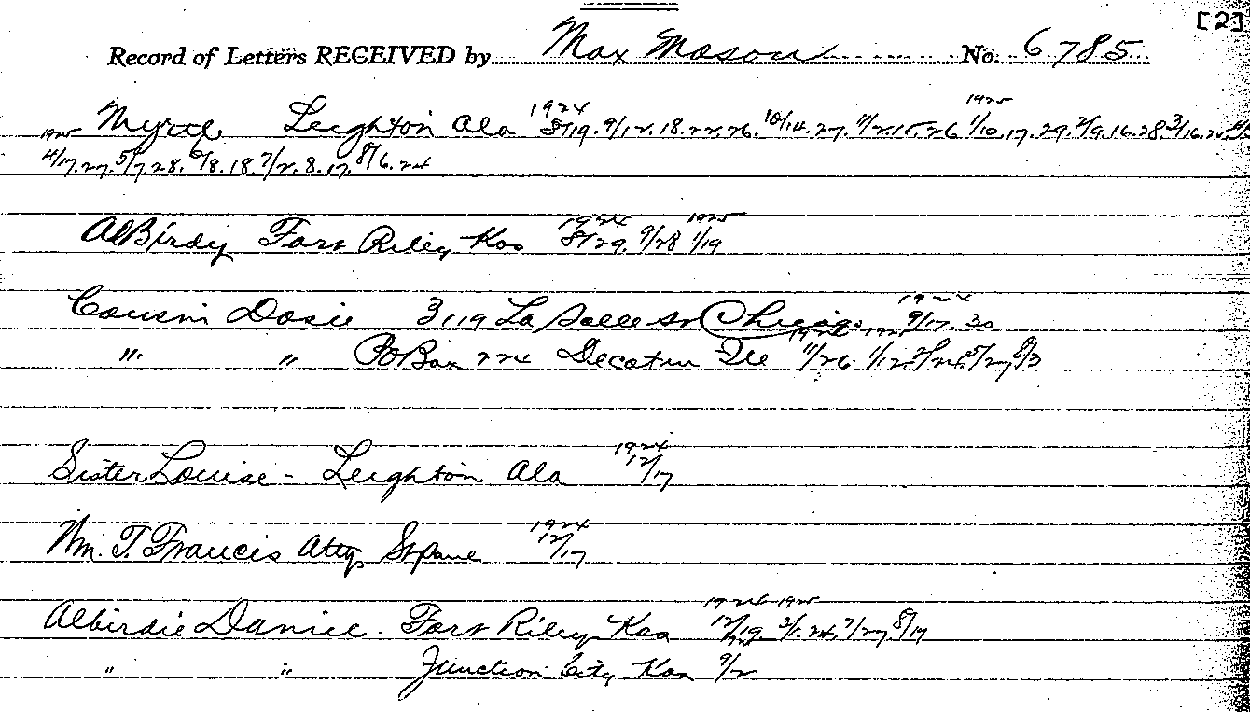 [2]
Record of Letters RECEIVED by Max Mason No. 6785
Myrtle Leighton Ala 1924 8/19. 9/12. 18. 22. 26. 10/14. 27. 11/2. 15. 26 1925 1/10. 17. 29. 2/9. 16. 28. 3/16. 
1925 4/17. 27. 5/7. 28. 6/8. 18. 7/2. 8. 17. 8/6. 24
AlBirdy Fort Riley Kas 1924 8/29. 9/28 1925 1/19
Cousin Dosie 3119 La Salle St Chicago 1924 9/17. 30
" " PO Box 224 Decatur Ill 1924 11/26 1925 1/12. 5/27.
Sister Louise - Leighton Ala 1924 12/17
Wm. T. Francis Atty St Paul 1924 12/17
Albirdie Daniel. Fort Riley Kas 1924 12/19 1925 2/1. 24. 7/27. 8/17
" " Junction City Kan 9/2